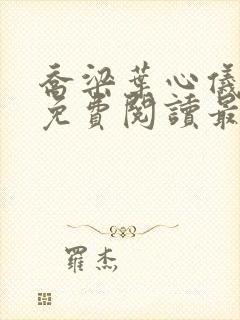 喬梁葉心儀
免費閱讀最
羅杰